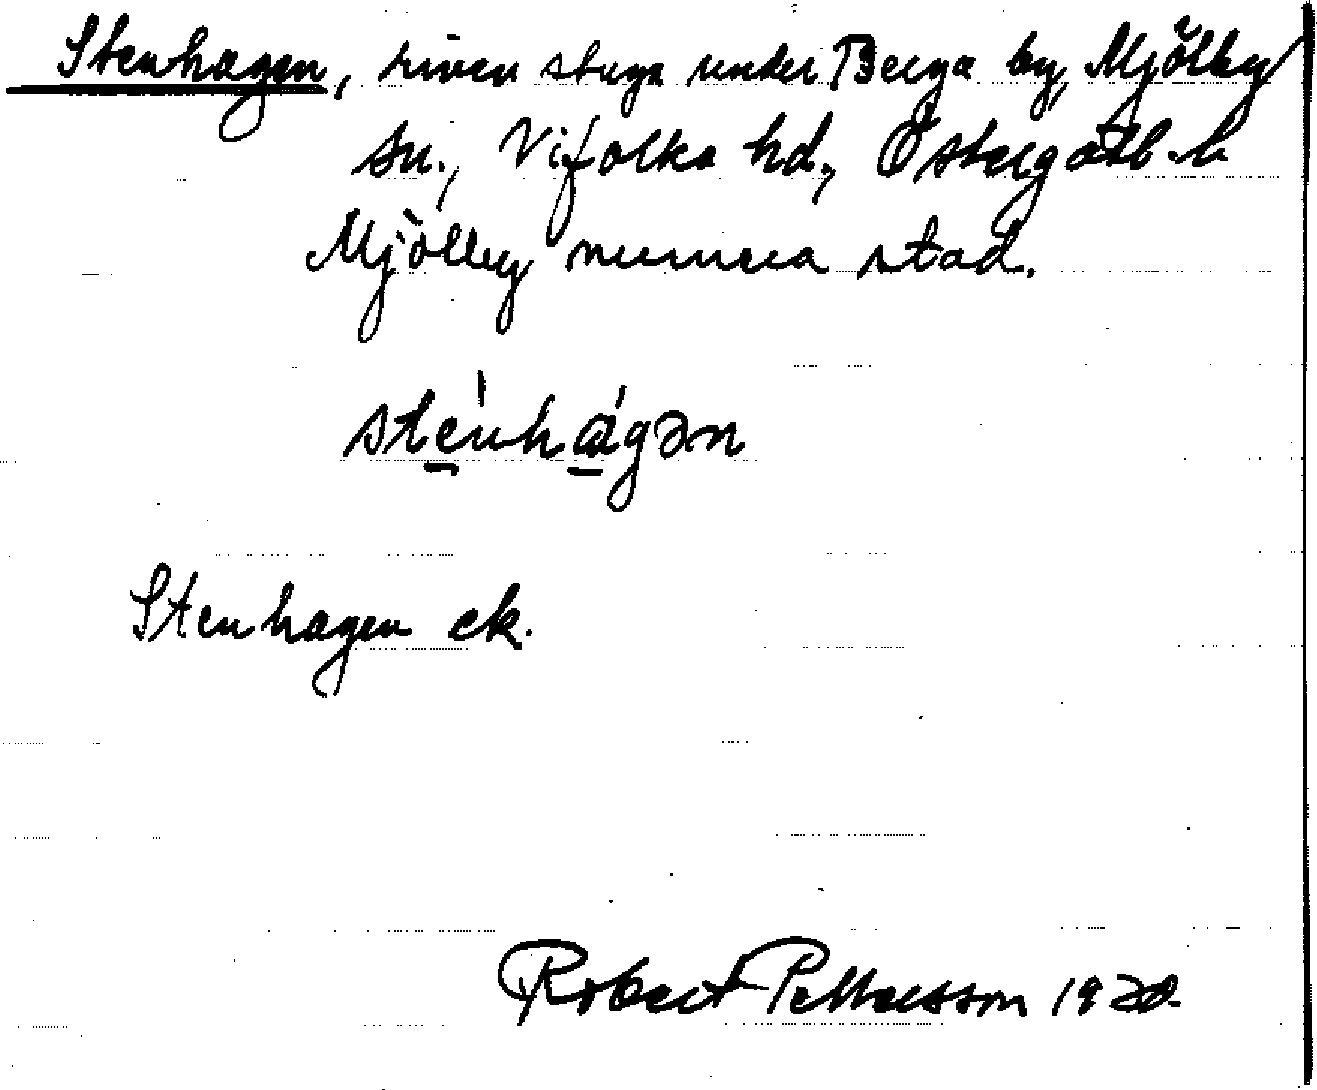 Stenhagen, riven stuga under Berga by, Mjölby
sn., Vifolka hd, Östergötl. l.
Mjölby numera stad.
ste̠`nha̠´gən
Stenhagen ek.
Robert Pettersson 1920